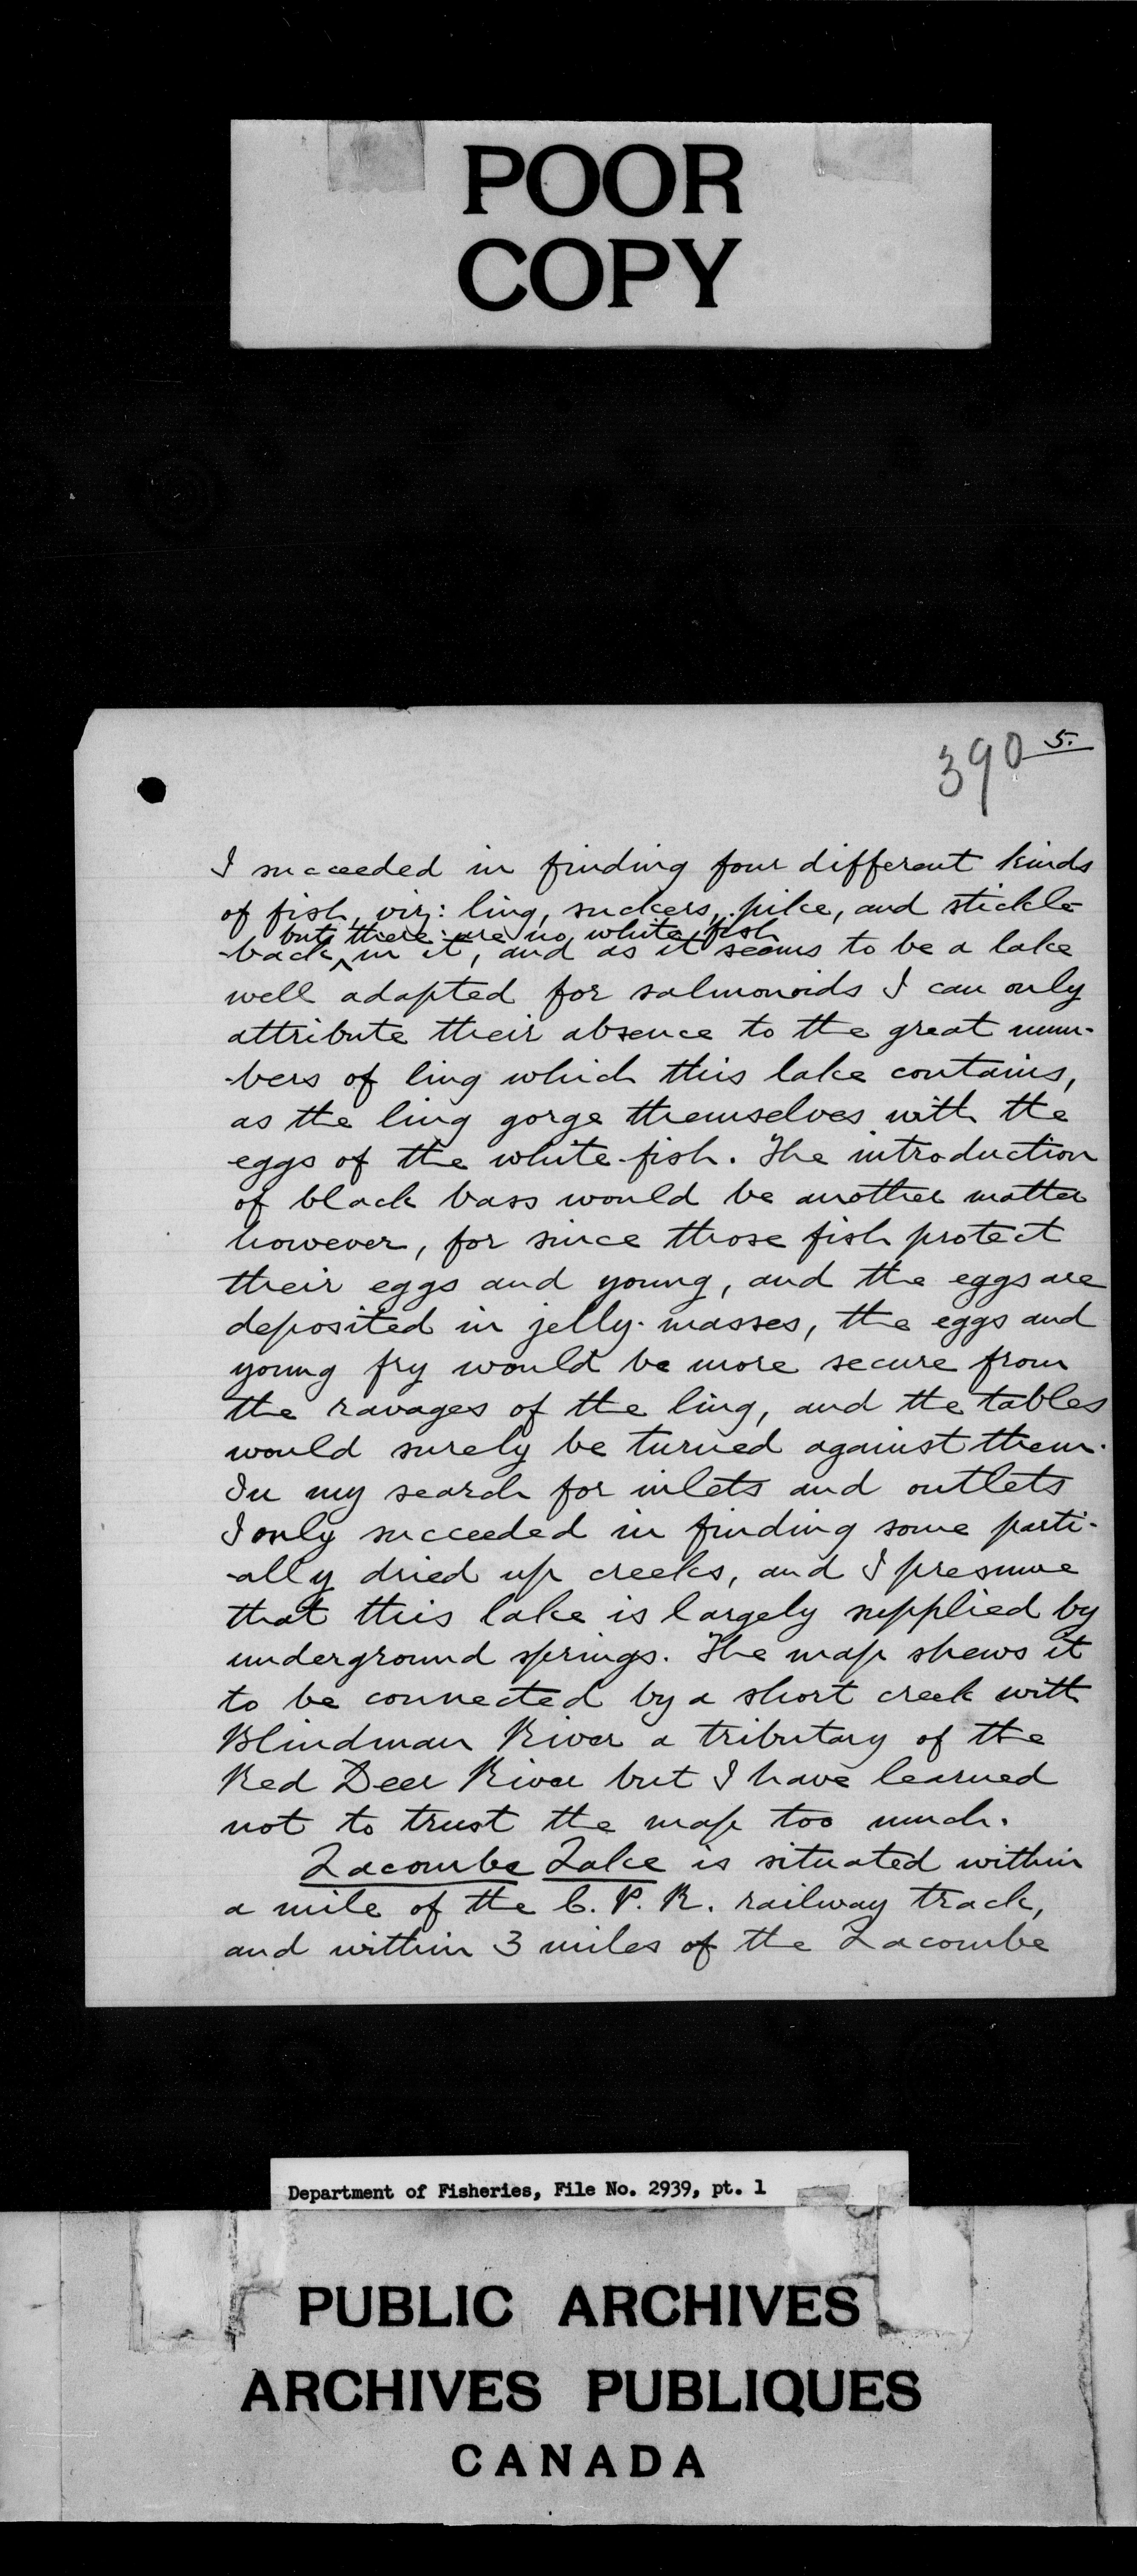 POOR
COPY
390 5.
I succeeded in finding four different kinds
of fish, viz: ling, suckers, pike, and stickle-
but there are no white fish
-back ^ in it, and as it seems to be a lake
well adapted for salmonoids I can only
attribute their absence to the great num-
-bers of ling which this lake contains,
as the ling gorge themselves with the
eggs of the white-fish. The introduction
of black bass would be another matter
however, for since those fish protect
their eggs and young, and the eggs are
deposited in jelly-masses, the eggs and
young fry would be more secure from
the ravages of the ling, and the tables
would surely be turned against them.
In my search for inlets and outlets
I only succeeded in finding some parti-
-ally dried up creeks, and I presume
that this lake is largely supplied by
underground springs. The map shews it
to be connected by a short creek with
Blindman River a tributary of the
Red Deer River but I have learned
not to trust the map too much.
Lacombe Lake is situated within
a mile of the C. P. R. railway track,
and within 3 miles of the Lacombe
Department of Fisheries, File No. 2939, pt. 1
PUBLIC ARCHIVES
ARCHIVES PUBLIQUES
CANADA